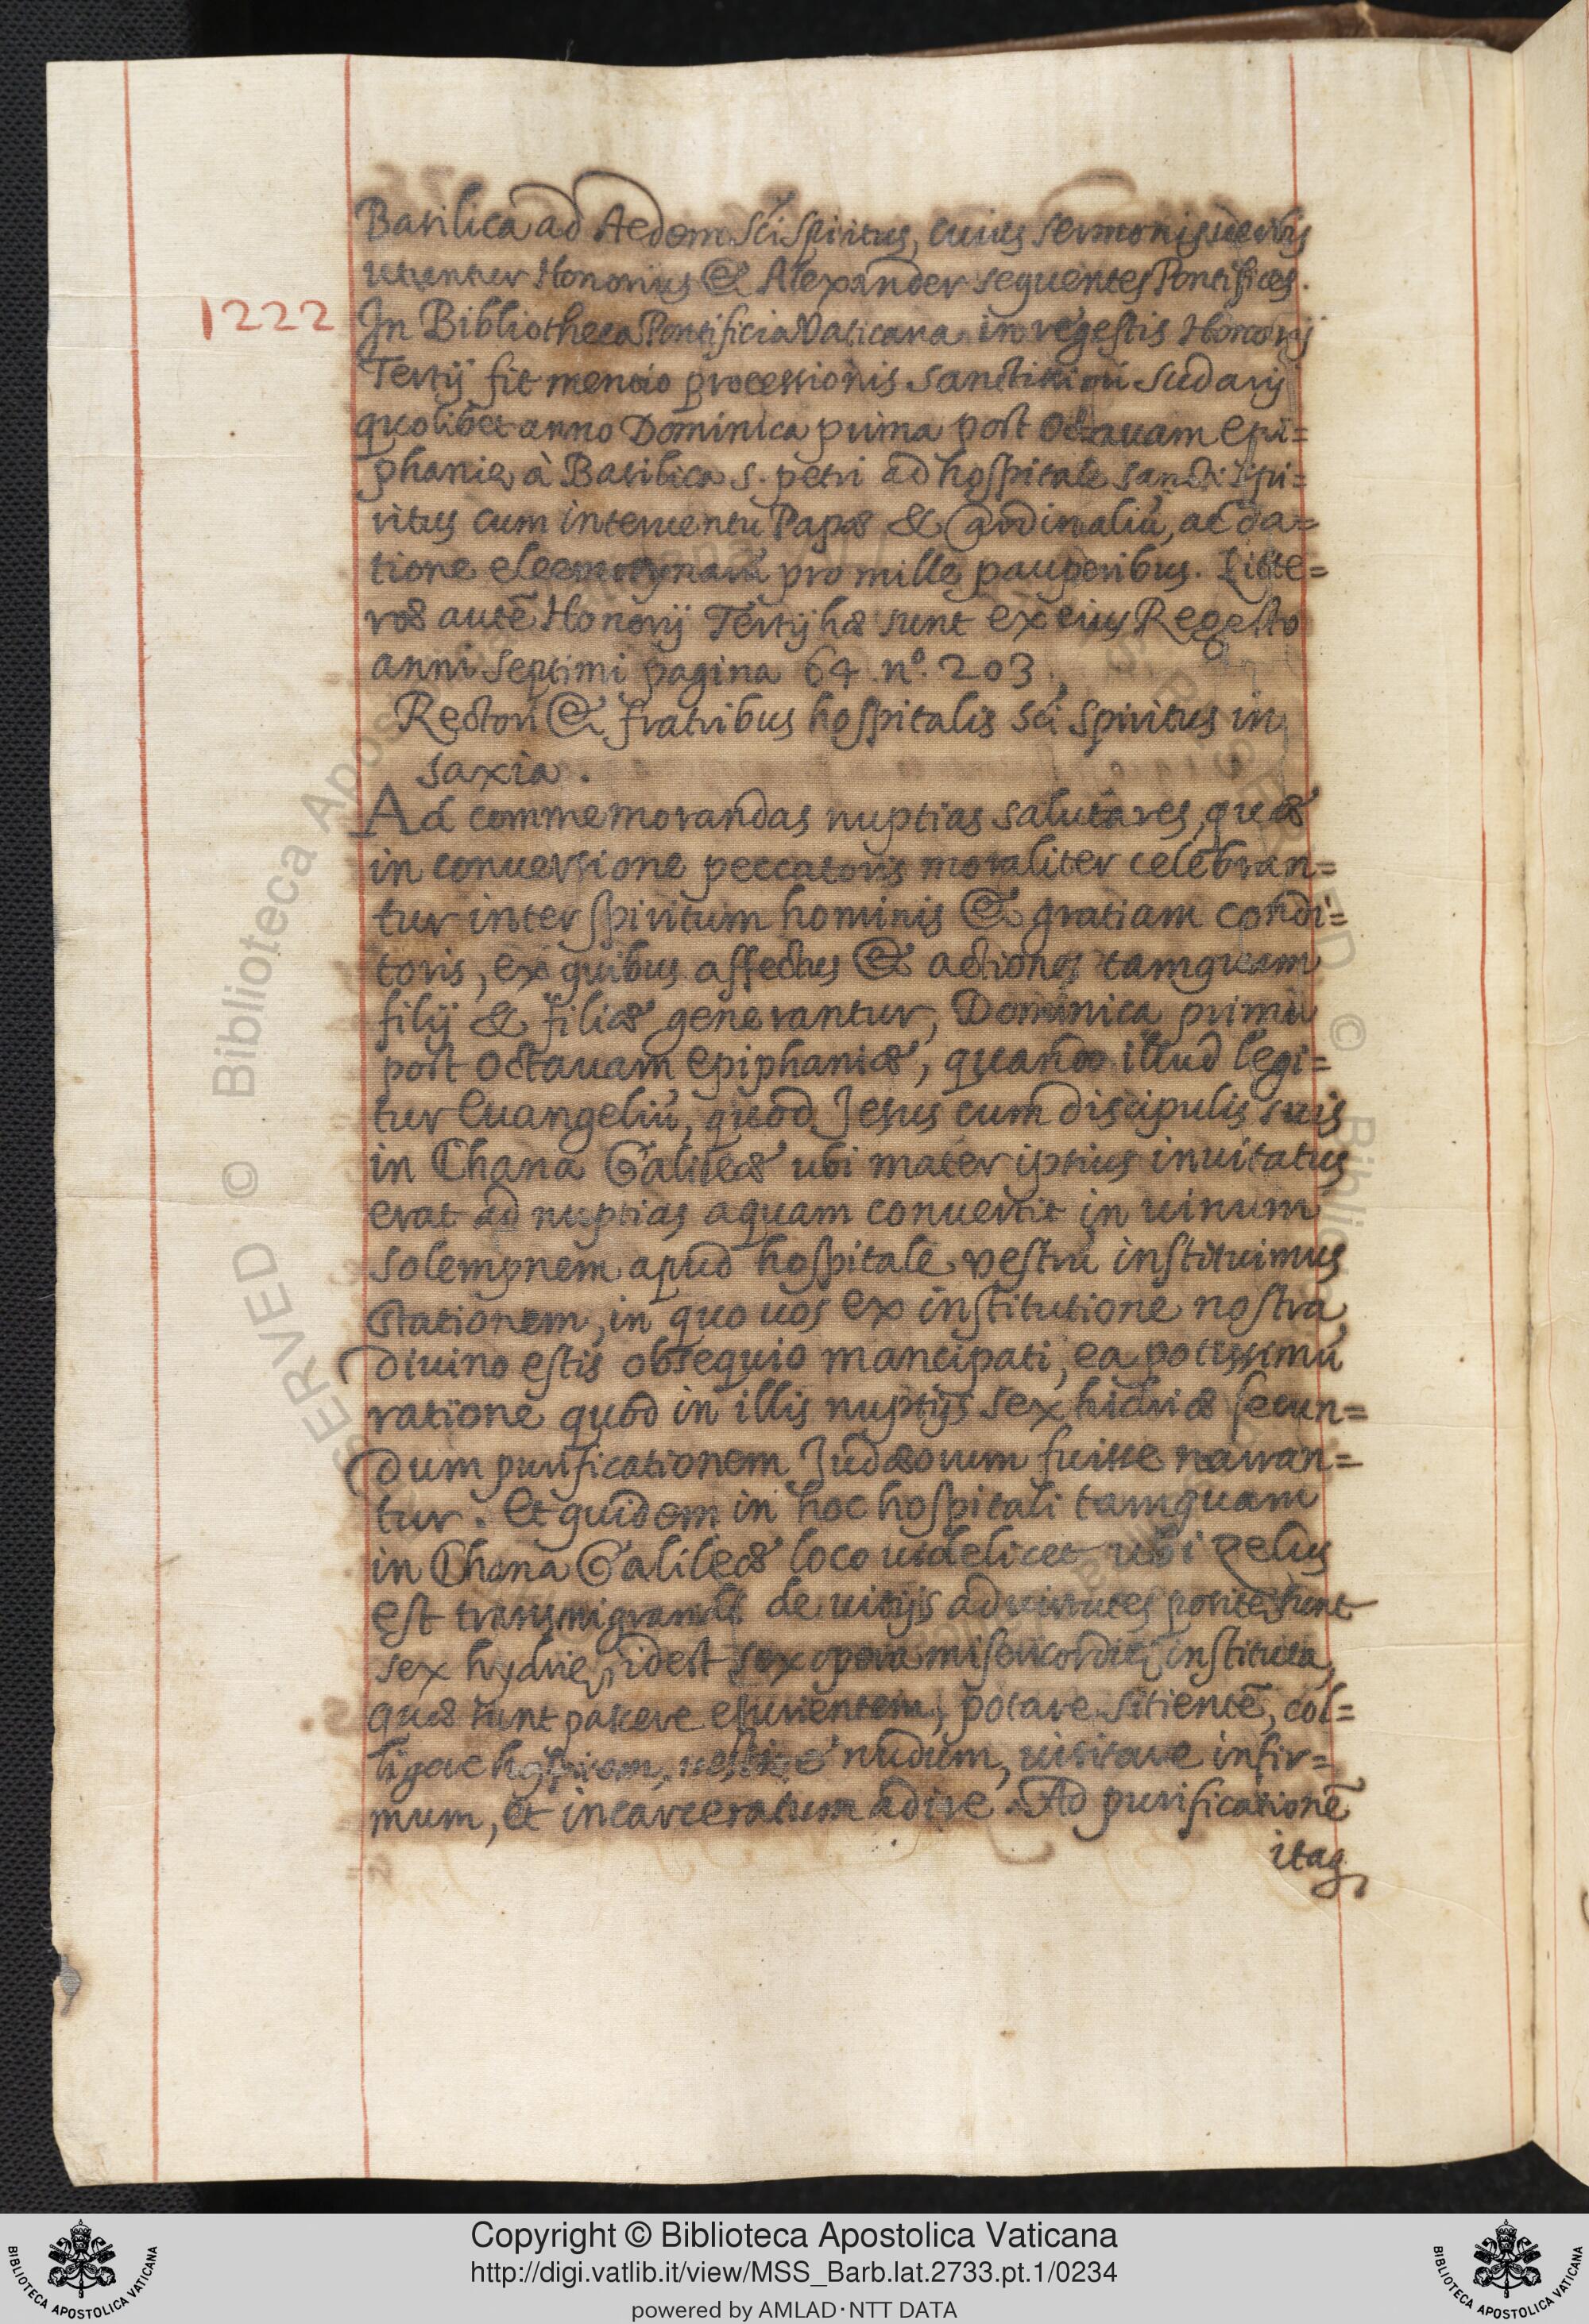 Basilica ad Aedem Sci Spiritus, cuius sermonis uerbis
utuntur Honorius & Alexander sequentes Pontifices.
1222 In Bibliotheca Pontificia Vaticana in regestis Honorij
Tertij fit mentio processionis sanctissimi sudarij
quolibet anno Dominica prima post Octauam epi=
phanię à Basilica S. petri ad hospitale sancti spi=
ritus cum interuentu Papæ & Cardinaliũ, ac da=
tione eleemosynarũ pro mille pauperibus. Litte=
ræ autẽ Honorij Tertij hæ sunt ex eius Regesto
anni septimi pagina 64. nº. 203.
Rectori & fratribus hospitalis sci Spiritus in
saxia.
Ad commemorandas nuptias salutares, quæ
in conuersione peccatoris moraliter celebran=
tur inter spiritum hominis & gratiam condi=
toris, ex quibus affectus & actiones tamquam
filij & filiæ generantur, Dominica prima
post Octauam epiphaniæ, quando illud legi=
tur Euangeliũ, quod Jesus cum discipulis suis
in Chana Galileæ ubi mater ipsius inuitatus
erat ad nuptias aquam conuertit in uinum
solempnem apud hospitale vestrũ instituimus
stationem, in quo uos ex institutione nostra
diuino estis obsequio mancipati, ea potissimũ
ratione quod in illis nuptijs sex hidriæ secun=
dum purificationem Judæorum fuisse narran=
tur. Et quidem in hoc hospitali tamquam
in Chana Galileæ loco uidelicet ubi zelus
est transmigrandi de uitijs ad uirtutes posite sunt
sex hydrię, idest sex opera misericordię instituta,
quæ sunt pascere esurientem, potare sitientẽ, col=
ligere hospitem, uestire nudum, uisitare infir=
mum, et incarceratum adire. Ad purificationẽ
itaq
Copyright © Biblioteca Apostolica Vaticana
http://digi.vatlib.it/view/MSS_Barb.lat.2733.pt.1/0234
powered by AMLAD·NTT DATA
BIBLIOTECA APOSTOLICA VATICANA
BIBLIOTECA APOSTOLICA VATICANA